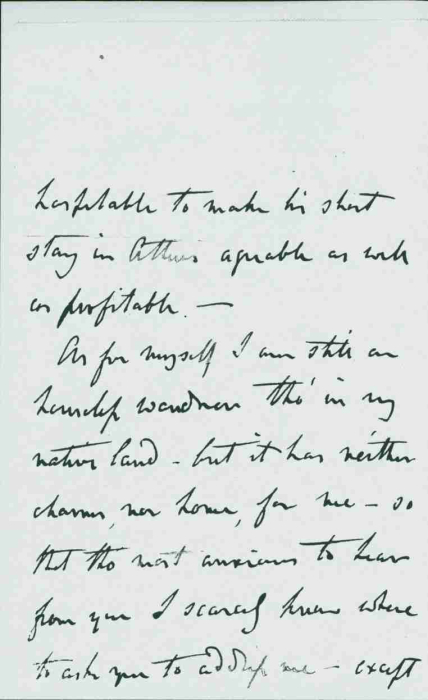 hospitable to make his short
stay in Athens agreable as well
as profitable. —
As for myself I am still an
houseless wanderer tho' in my
native land – but it has neither
charms, nor home, for me – so
that tho most anxious to hear
from you I scarcely know where
to ask you to address me – except